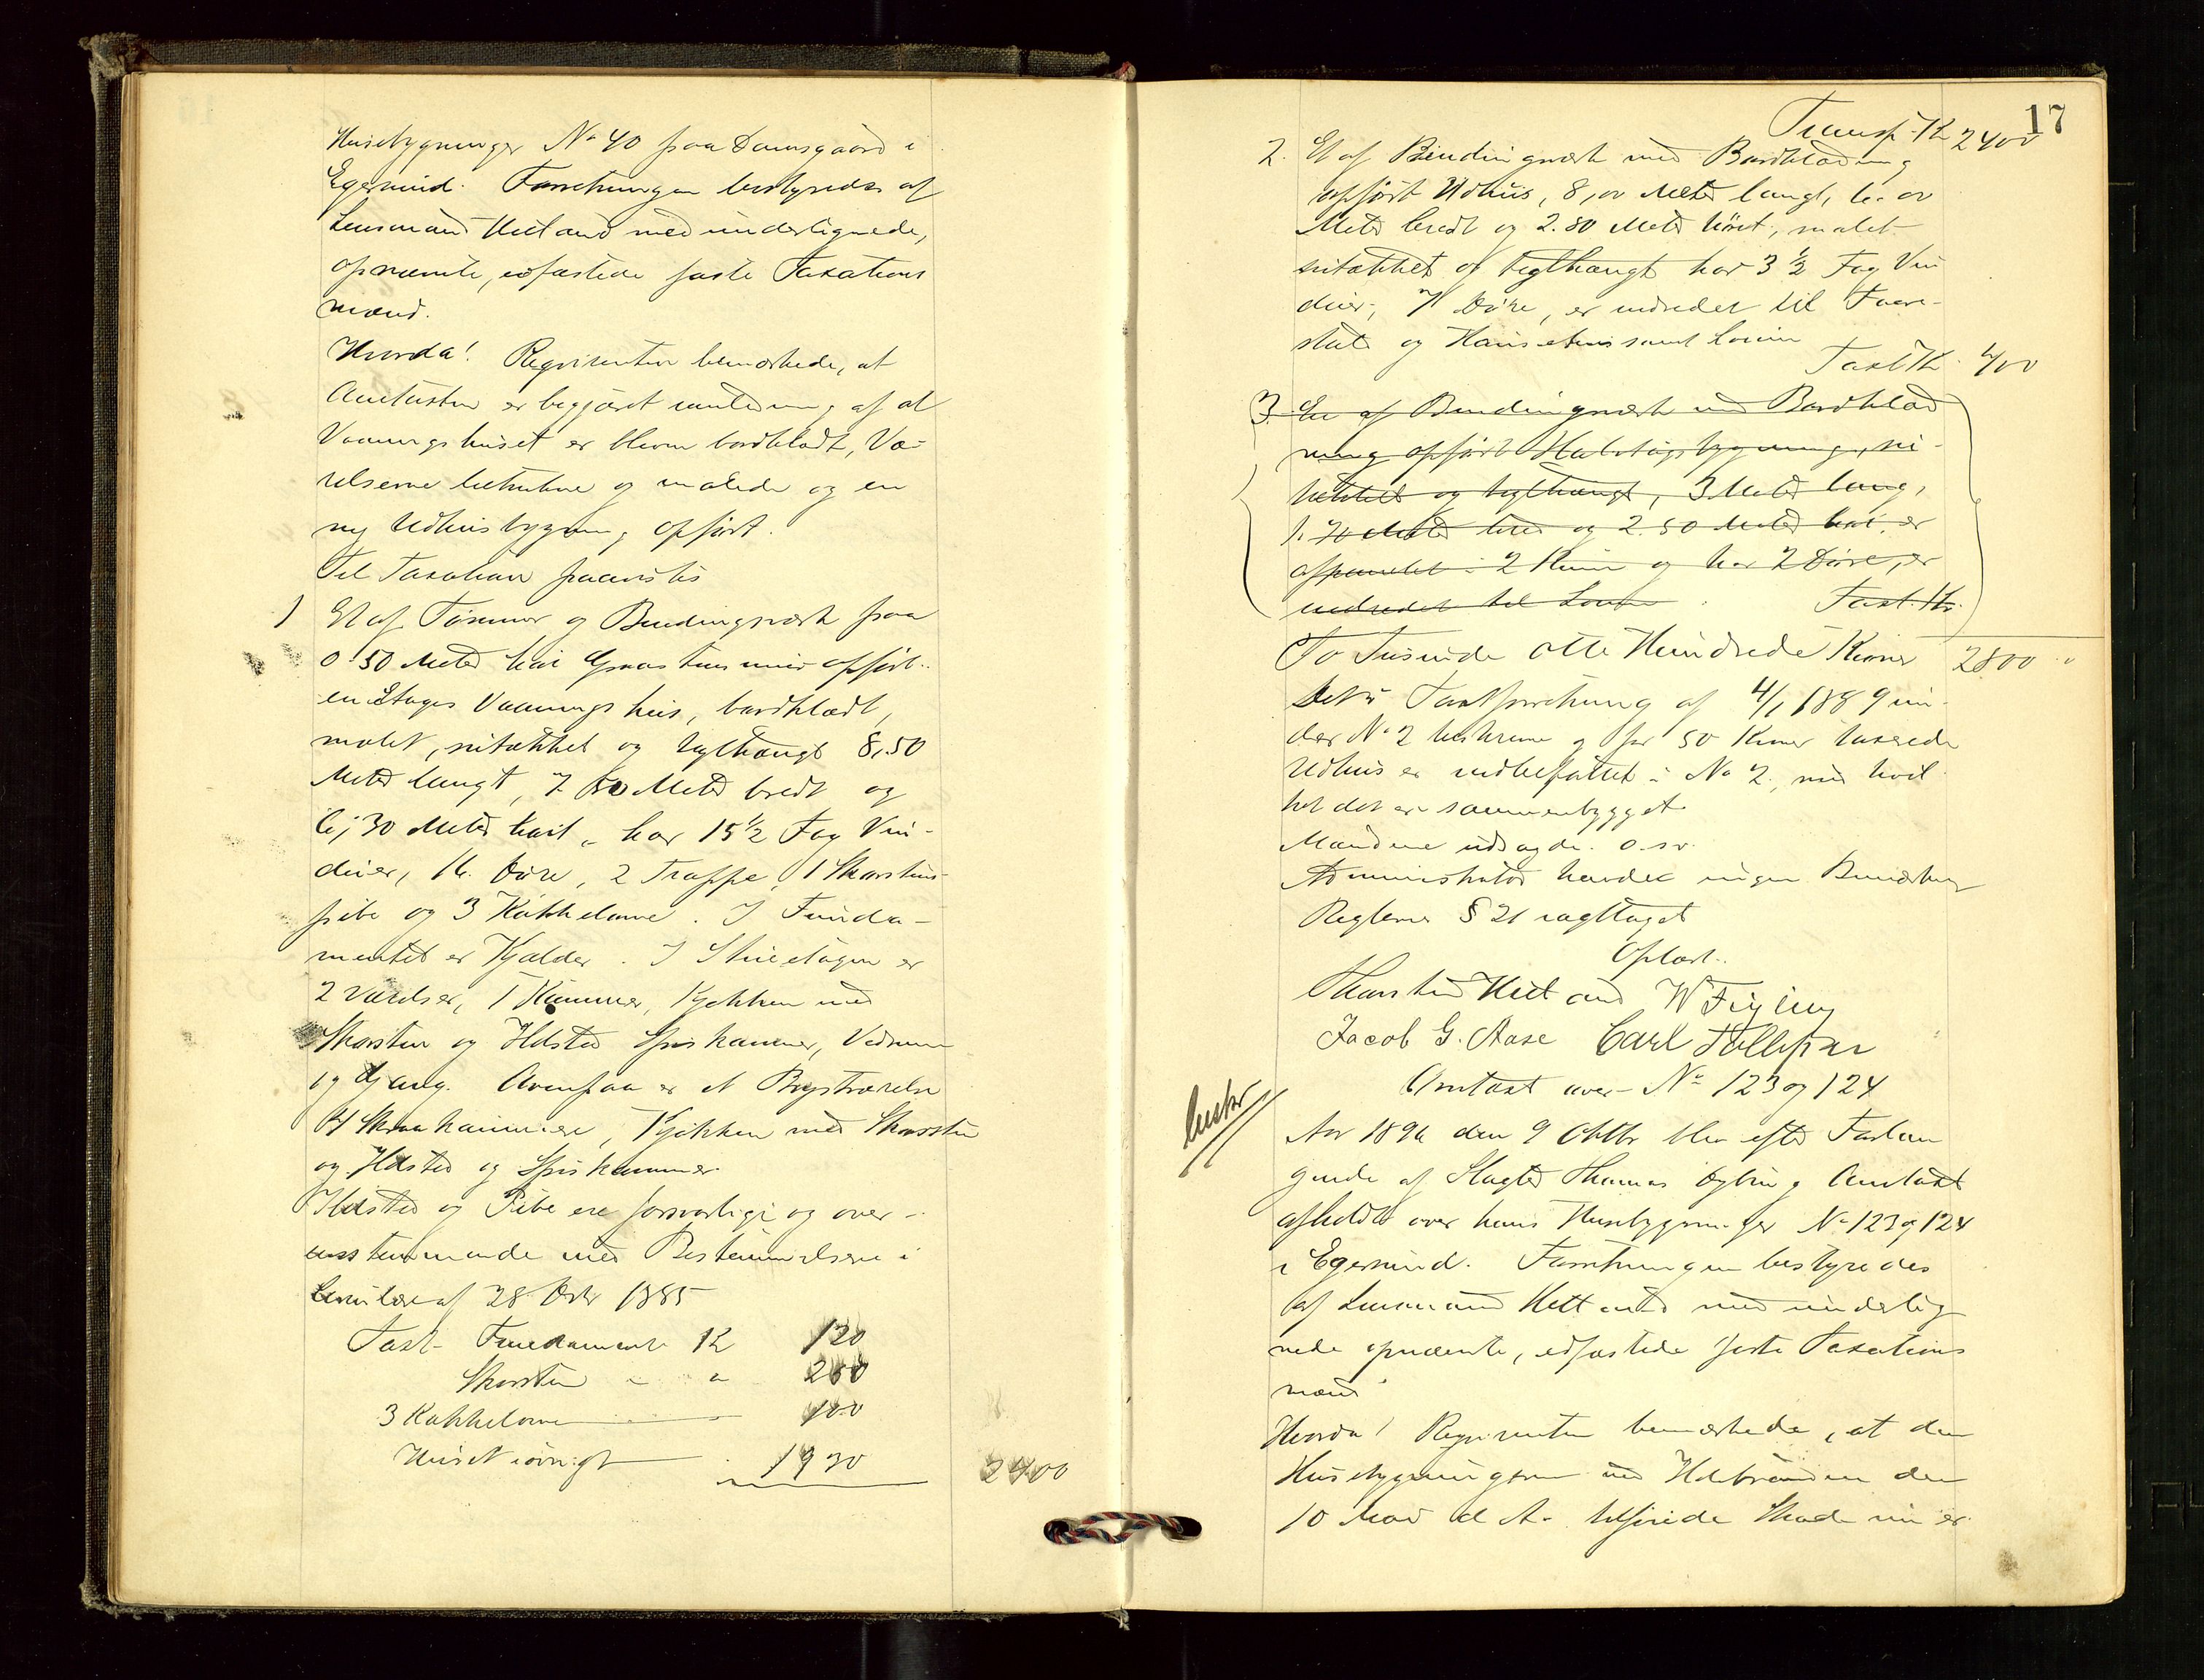 Husebygninger No 40 paa Damsgaard i
Egersund. Forretningen bestyredes af
Lensmand Hetland med undertegnede,
opnævnte, edfæstede faste Taxations
mænd.
Hvorda! Reqvirenten bemærkede, at
Omtaxten er begjæret i anledning af at
Vaaningshuset er bleven bordklædt, Væ-
relserne betrukne og malede og en
ny Udhusbygning opført.
Til Taxation paavistes
1) Et af Tømmer og Bindingsværk paa
0.50 Meter høi Graastensmur opført
en Etages Vaaningshus, bordklædt,
malet, nitækket og teglhængt 8,50
Meter langt, 7.50 Meter bredt og
30 Meter høit, har 15 1/2 Fag Vin-
duer, Døre, 2 Trappe, 1 Skorstens-
pibe og 3 Kakkelovne. I Funda-
mentet er Kjælder. I Stueetagen er
2 Værelser, 1 Kammer, Kjøkken med
Skorsten og Ildsted Spiskammer, Vedrum
og Gang. Ovenpaa er et Brystværelse
4 Skraakammere, Kjøkken med Skorsten
og Ildsted og Spiskammer.
Ildsted og Pibe ere forsvarlige og over-
ensstemmende med Bestemmelserne i
Cirkulære af 28 Octbr 1885
Taxt Fundament Kr 120
Skorsten " " 250
3 Kakkelovne 100
Huset iøvrigt 1930
2400
17
Transp. Kr 2400
2. Et af Bindingsværk med Bordklædning
opført Udhus, 8,00 Meter langt,
Meter bredt og 2.80 Meter høit, malet
nitækket og teglhængt har 3 1/2 Fag Vin
duer, 7 Døre, er indredet til Faare-
stald og Hønsehus samt
Taxt Kr. 400
3. En af Bindingsværk med Bordklæd
ning opført Halvtagsbygning, ni-
tækket og teglhængt, 3 Meter lang,
1.70 Meter bred og 2.50 Meter høi, er
afpanelet i 2 Rum og har 2 Døre, er
indredet til Taxt. Kr.
To Tusinde otte Hundrede Kroner 2800 "
Det i Taxtforretning af 4/1 1889 un-
der No 2 beskrevne og for 50 Kroner taxerede
Udhus er indbefattet i No 2, med hvil
ket det er sammenbygget
Mændene udsagde. o.sv.
Administrator havde ingen Bemærkng
Reglerne § 21 iagttaget
Oplæst.
Thorsten Hetland W Feyling
Jacob G. Aase Carl Tollefsen
Omtaxt over No 123 og 124
Aar 1896 den 9 Oktbr blev efter Forlan
gende af Slagter Thomas Omtaxt
afholdt over hans Husebygninger No 123 og 124
i Egersund. Forretningen bestyredes
af Lensmand Hetland med underteg
nede opnævnte, edfæstede faste Taxations
mænd
Hvorda! Reqvirenten bemærkede, at den
Husebygningerne ved Ildebranden den
10 d A. tilføiede Skade nu er